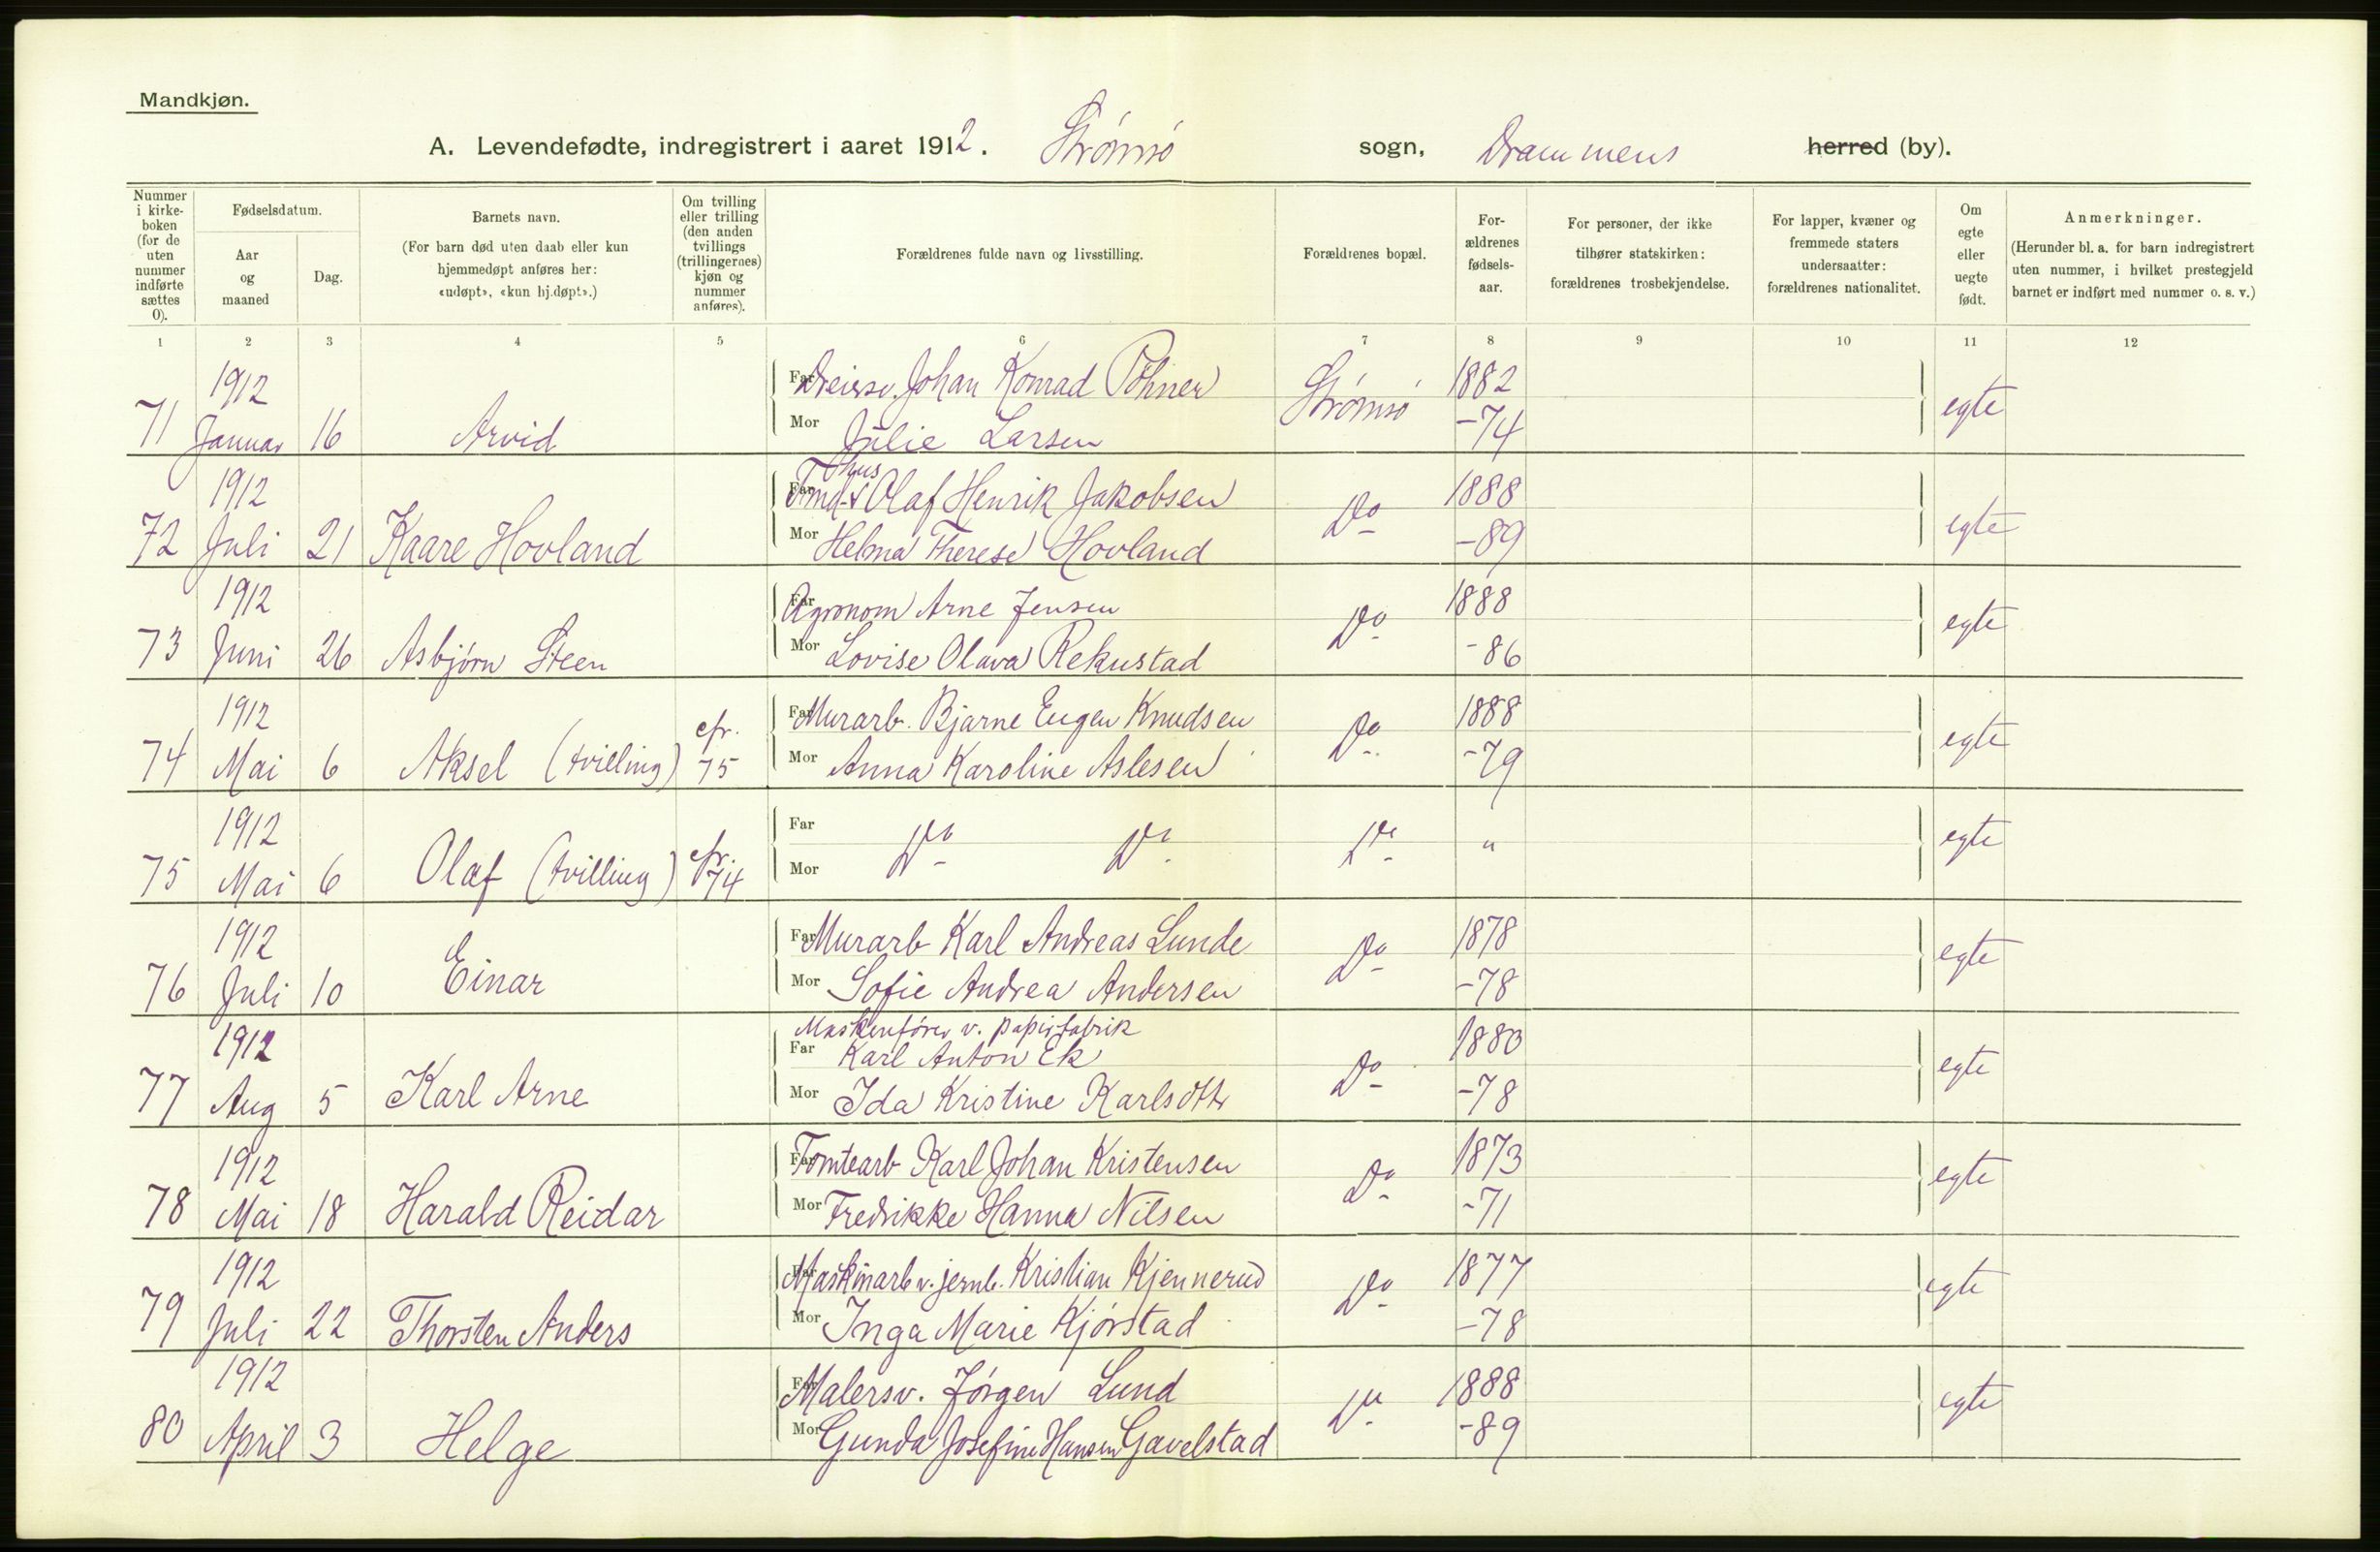 Mandkjøn.
A. Levendefødte, indregistrert i aaret 1912. Strømsø sogn, Drammens herred (by).
Nummer i kirke-boken (for de uten nummer indførte sættes 0).
Fødselsdatum.
Aar og maaned
Dag.
Barnets navn.
(For barn død uten daab eller kun hjemmedøpt anføres her: «udøpt», «kun hj.døpt».)
Om tvilling eller trilling (den anden tvillings (trillingernes) kjøn og nummer anføres).
Forældrenes fulde navn og livsstilling.
Forældrenes bopæl.
For-ældrenes fødsels-aar.
For personer, der ikke tilhører statskirken: forældrenes trosbekjendelse.
For lapper, kvæner og fremmede staters undersaatter: forældrenes nationalitet.
Om egte eller uegte født.
Anmerkninger.
(Herunder bl. a. for barn indregistrert uten nummer, i hvilket prestegjeld barnet er indført med nummer o. s. v.)
1 2 3 4 5 6 7 8 9 10 11 12
1912 Far Dreiersv. Johan Konrad Pöhner Strømsø 1882
71 Januar 16 Arvid Mor Julie Larsen -74 egte
1912 Far Olaf Henrik Jakobsen Do 1888
72 Juli 21 Kaare Hovland Mor Helma Therese Hovland -89 egte
1912 Far Agronom Arne Jensen Do 1888
73 Juni 26 Asbjørn Steen Mor Lovise Olava Rekustad -86 egte
1912 Far Murarb. Bjarne Eugen Knudsen Do 1888
74 Mai 6 Aksel (tvilling) cfr. 75 Mor Anna Karoline Aslesen -79 egte
1912 Far Do Do Do "
75 Mai 6 Olaf (tvilling) cfr. 74 Mor egte
1912 Far Murarb Karl Andreas Lunde Do 1878
76 Juli 10 Einar Mor Sofie Andrea Andersen -78 egte
Maskenfører v. papirfabrik
1912 Far Karl Anton Ek Do 1880
77 Aug 5 Karl Arne Mor Ida Kristine Karlsdttr -78 egte
1912 Far Tomtearb Karl Johan Kristensen Do 1873
78 Mai 18 Harald Reidar Mor Fredrikke Hanna Nilsen -71 egte
1912 Far Maskinarb v. jernb. Kristian Kjennerud Do 1877
79 Juli 22 Thorsten Anders Mor Inga Marie Kjørstad -78 egte
1912 Far Malersv. Jørgen Lund Do 1888
80 April 3 Helge Mor Gunda Josefine Hansen Gavelstad -89 egte